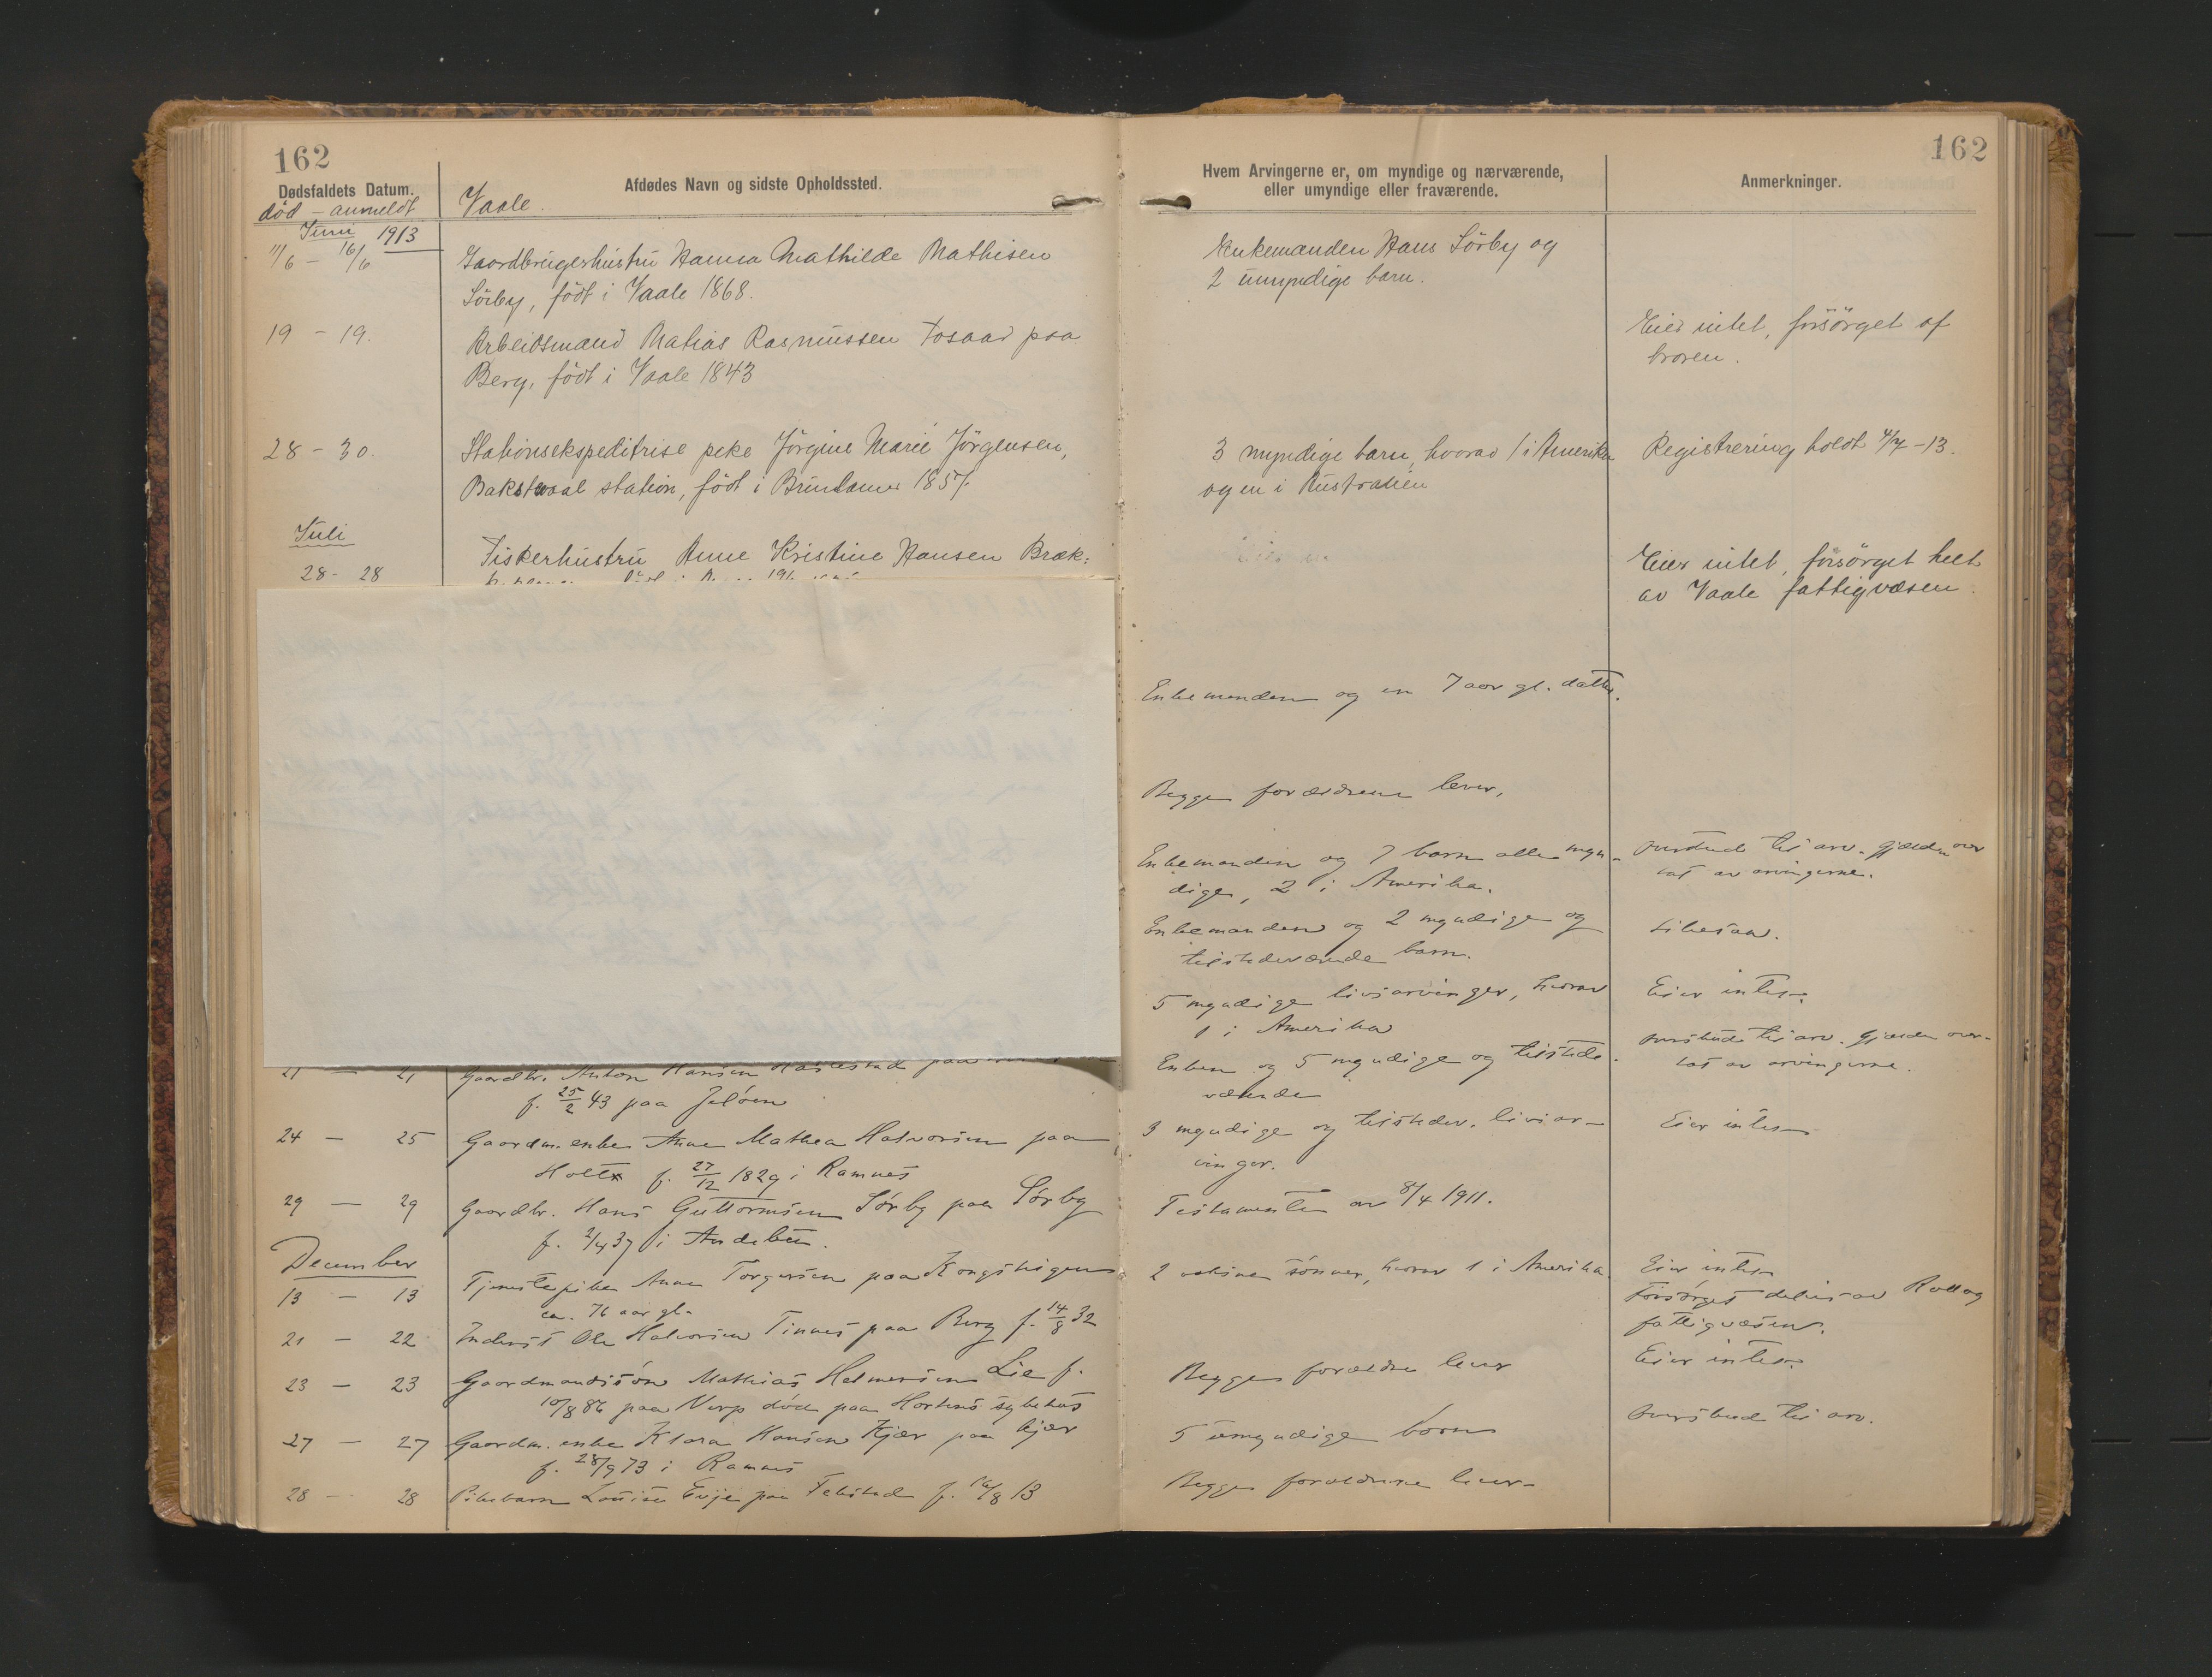 162
Dødsfaldets Datum.
død – anmeldt
Afdødes Navn og sidste Opholdssted.
Vaale.
Juni 1913
11/6 – 16/6
Gaardbrugerhustru Hanna Mathilde Mathisen
Sörby, född i Vaale 1868.
19 – 19.
Arbeidsmand Matias Rasmussen Fosaas paa
Berg, född i Vaale 1843
28 – 30.
Stationsekspeditrise Jörgine Marie Jörgensen,
station, född i 1857.
Juli
28 - 28
Fiskerhustru Anne Kristine Hansen Bræk:
21 – 21
Gaardbr. Anton Hansen paa
f. 25/2 43 paa Jeløen
24 – 25
Gaardm. enke Anne Mathea Halvorsen paa
Holt f. 27/12 1829 i Ramnes
29 – 29
Gaardbr. Hans Guttormsen Sørby paa Sørby
f. 2/4 37 i Andebu.
December
13 – 13
Tjenestepike Anne Torgersen paa
ca. 76 aar gl.
21 – 22
Inderst Ole Halvorsen Tinnes paa Berg f. 14/8 32
23 – 23
Gaardmandssøn Mathias Helmersen Lie f.
10/8 86 paa Verp død paa Hortens sykehus
27 – 27
Gaardm. enke Klara Hansen Kjær paa Kjær
f. 28/9 73 i Ramnes
28 – 28
Pikebarn Louise Evje paa f. 16/8 13
162
Hvem Arvingerne er, om myndige og nærværende,
eller umyndige eller fraværende.
Anmerkninger.
Enkemanden Hans Sörby og
2 umyndige barn.
Eier intet, forsörget af
broren.
3 myndige barn, hvorav 1 i Amerika
og en i Australien
Registrering holdt 4/7 – 13.
Eier intet, forsörget helt
av Vaale fattigvæsen.
Enkemanden og en 7 aar gl. datter.
Begge forældrene lever.
Enkemanden og 7 barn alle myn-
dige, 2 i Amerika.
Gjælden over
tat av arvingerne.
Enkemanden og 2 myndige og
tilstedeværende barn.
Likesaa.
5 myndige livsarvinger, hvorav
1 i Amerika
Eier intet.
Enken og 5 myndige og tilstede-
værende
Gjælden over-
tat av arvingerne.
3 myndige og tilstedev. livsar-
vinger.
Eier intet
Testamente av 8/4 1911.
2 voksne sønner, hvorav 1 i Amerika.
Eier intet
Forsørget delvis av
fattigvæsen.
Eier intet.
Begge forældre lever
5 umyndige børn
Begge forældrene lever